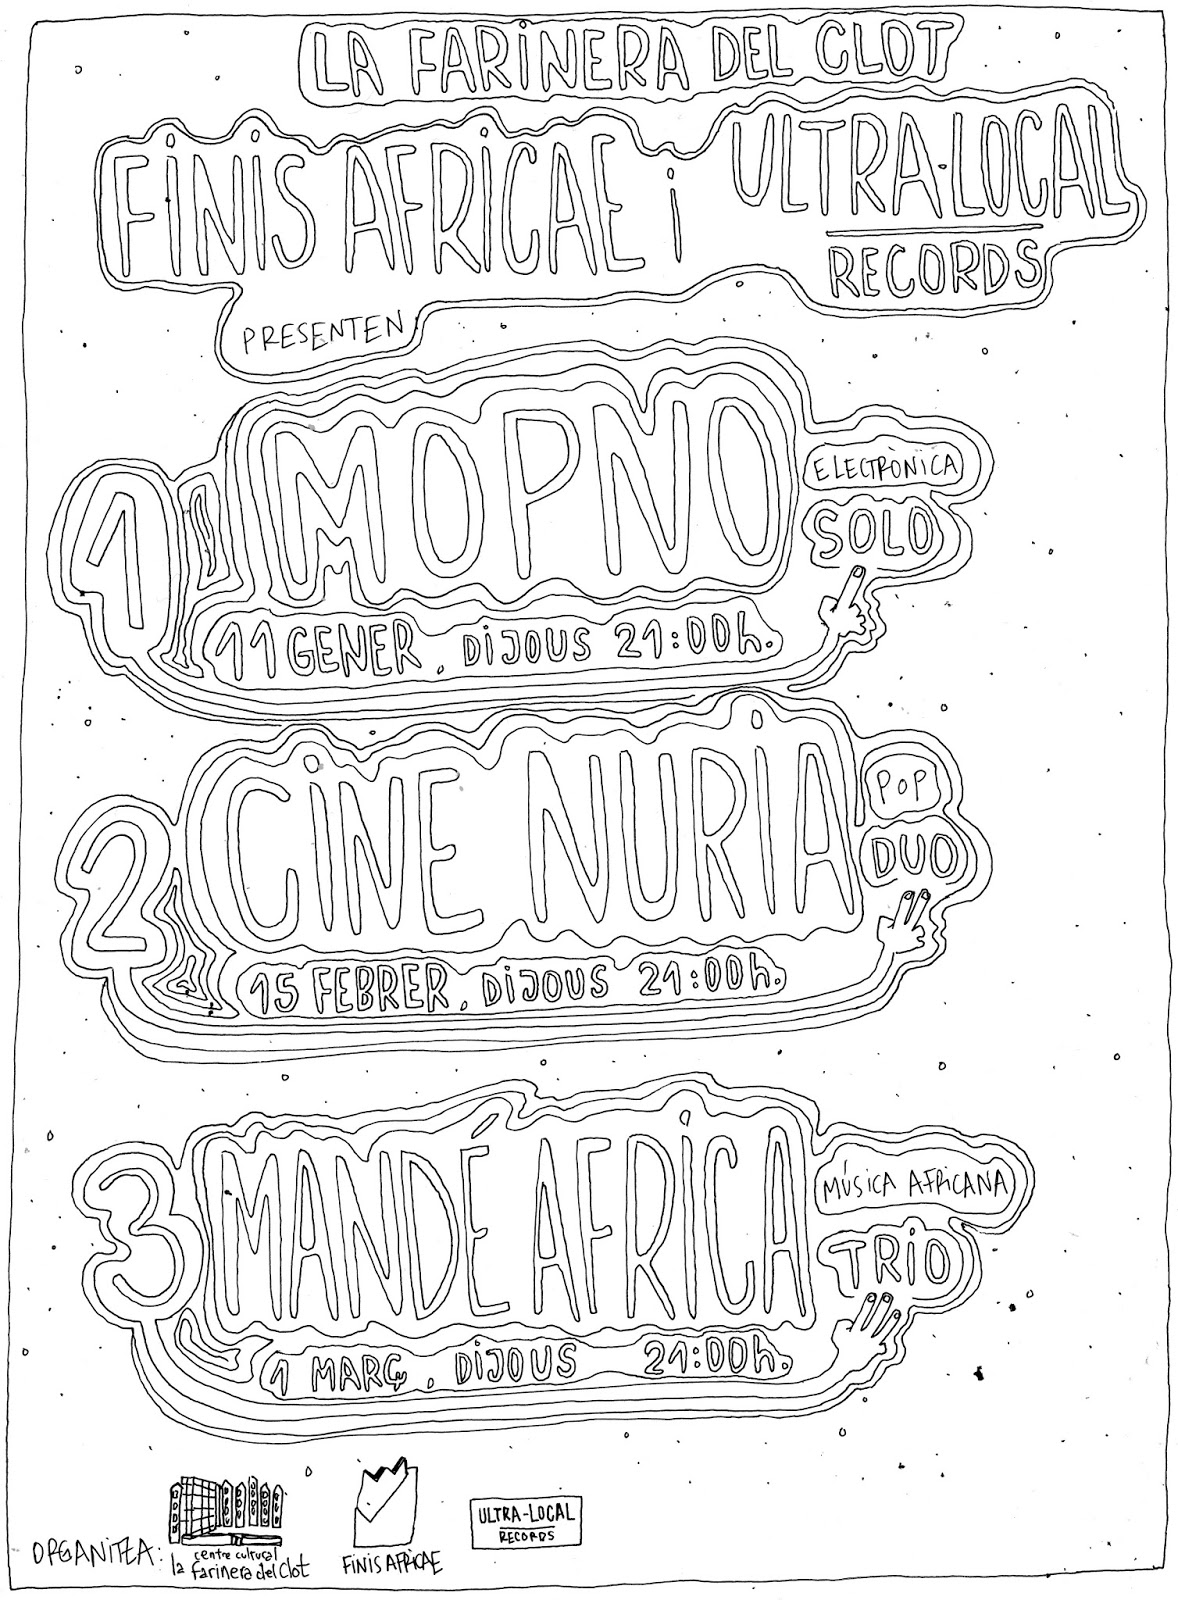 LA FARiNERA DEL CLOT
FiNiS AFRiCAE i ULTRA-LOCAL
RECORDS
PRESENTEN
1 MOPNO
ELECTRÒNICA
SOLO
11 GENER, DiJOUS 21:00h.
2 CiNE NURiA
POP
DUO
15 FEBRER, DiJOUS 21:00h.
3 MANDÉ AFRiCA
MÚSICA AFRiCANA
TRiO
1 MARÇ, DiJOUS 21:00h.
ORGANITZA:
centre cultural
la farinera del Clot
FiNiS AFRiCAE
ULTRA-LOCAL
RECORDS